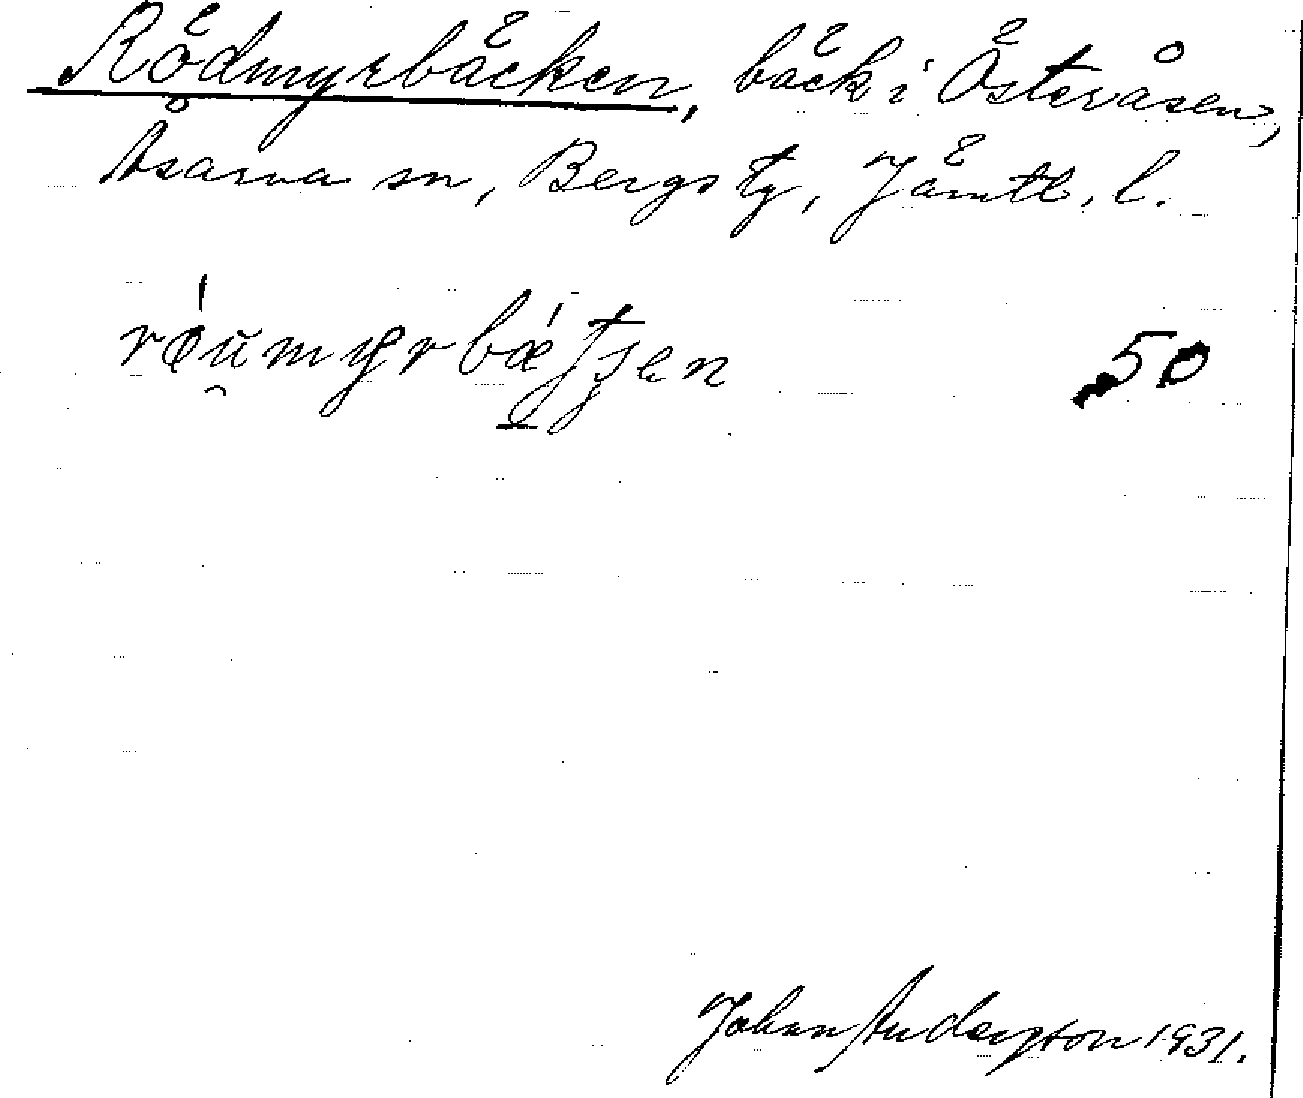 Rödmyrbäcken, bäck i Österåsen,
Åsarna sn, Bergs tg, Jämtl. l.
50
Johan Anderzson 1931.